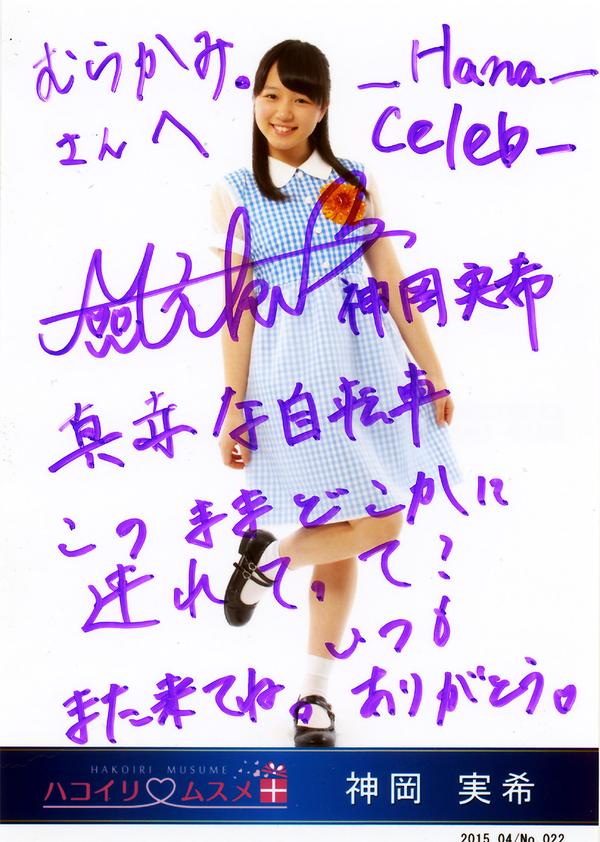 むらかみ。
さんへ
_Hana_
Celeb_
Miku
神岡実希
真赤な自転車
このままどこかに
連れてって?
いつも
また来てね。ありがとう。
HAKOIRI MUSUME
ハコイリ♡ムスメ
神岡 実希
2015.04/No.022